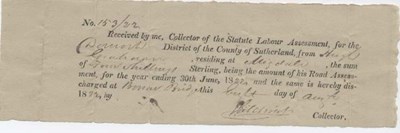 No. 153/22
Received by me, Collector of the Statute Labour Assessment, for the
District of the County of Sutherland, from Hugh
residing at Migdale, the sum
of Four Shillings Sterling, being the amount of his Road Assess-
ment, for the year ending 30th June, 18 and the same is hereby dis-
charged at Bonar Bridge this day of Augt
18
Collector.